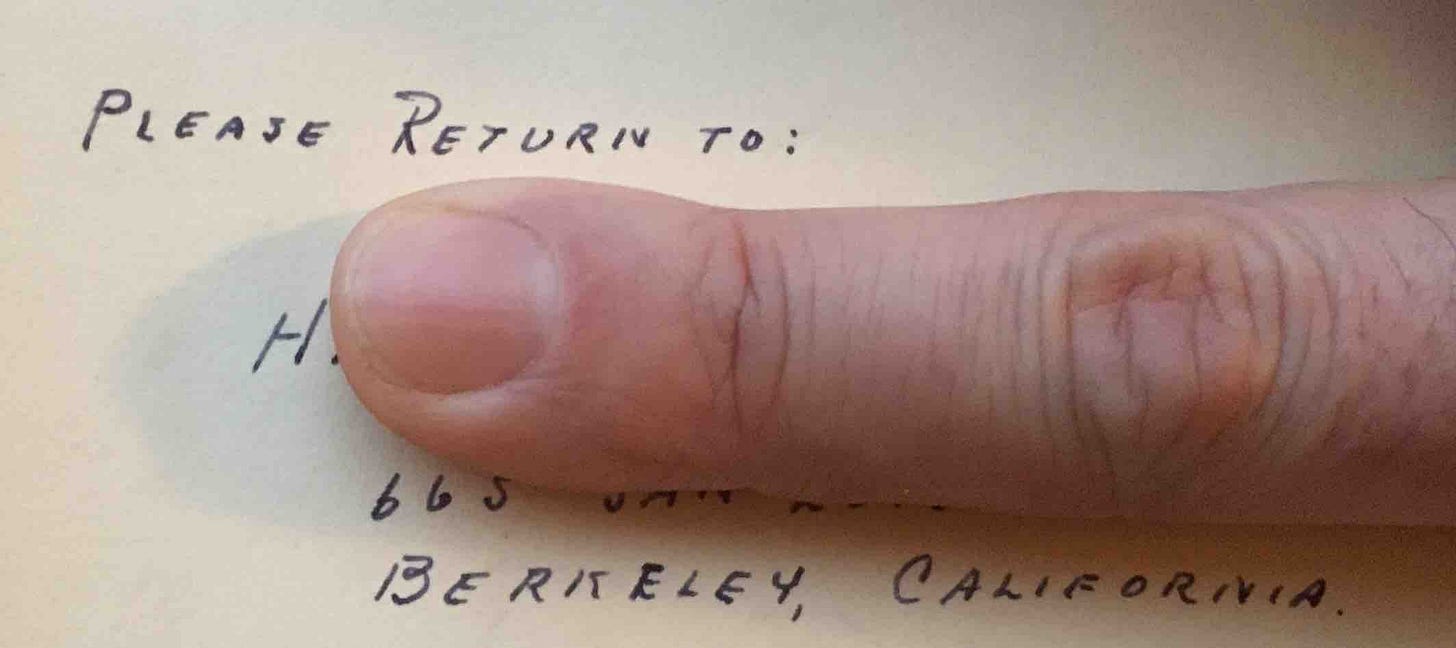 PLEASE RETURN TO:
H.
665 SAN
BERKELEY, CALIFORNIA.